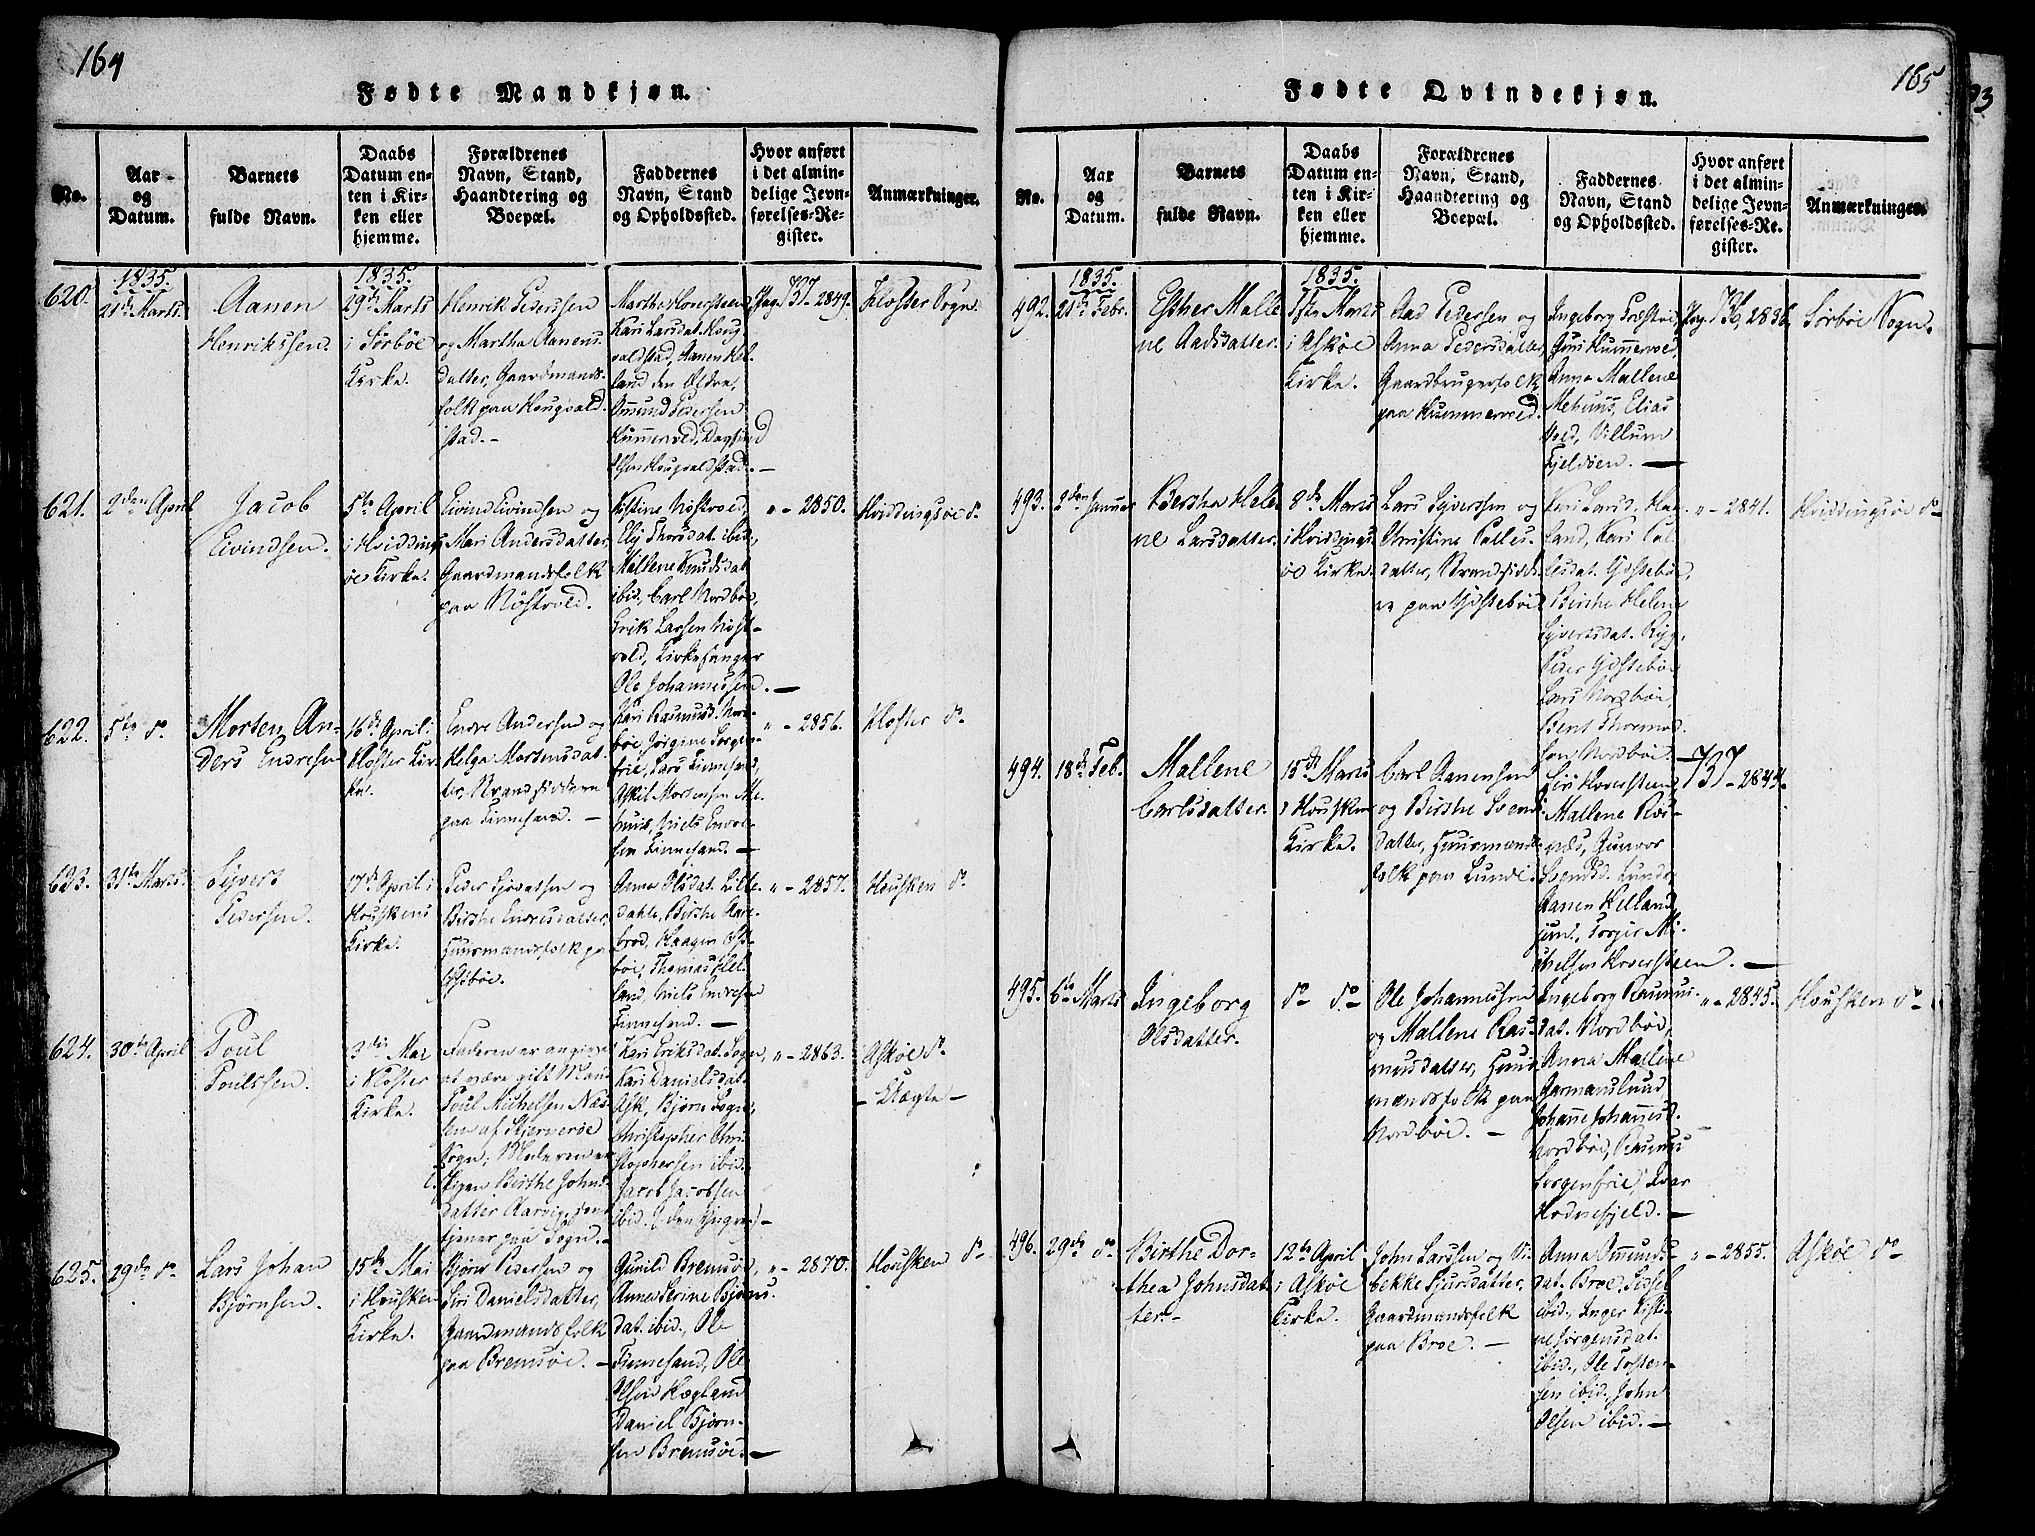 164
Fødte Mandkjøn.
No.
Aar og Datum.
Barnets fulde Navn.
Daabs Datum enten i Kirken eller hjemme.
Forældrenes Navn, Stand, Haandtering og Boepæl.
Faddernes Navn, Stand og Opholdssted.
Hvor anført i det almindelige Jevnførelses-Register.
Anmærkninger.
620.
1835.
21de Marts.
Aanen
Henrikssen.
1835.
29de Marts
i Sørbøe
Kirke.
Henrik Pederssen
og Martha Aanens-
datter, Gaardmands-
folk paa Hougvald-
stad. –
Kari Larsdat. Houg-
valdstad, Aanen Hel-
land den Ældre,
Omund Pedersen
Hummervold, Dagfind
Pag. 737. 2849.
Kloster Sogn.
621.
2den April
Jacob
Eivindsen.
5te April
i Hviddings-
øe Kirke.
Eivind Eivindsen og
Mari Andersdatter,
Gaardmandsfolk
paa Nøstvold.
Kistine Nøstvold,
Eli Thorsdat. ibid.,
Mallene Knudsdat.
ibid., Carl Nordbøe,
Erik Larsen Nøst-
vold, Kirkesanger
Ole Johannessen. –
" – 2850.
Hviddingsøe do
622.
5te do
Morten An-
ders Endresen
16de April i
Kloster Kir-
ke.
Endre Andersen og
Helga Mortensdat-
ter, Strandsiddere
paa Finnesand. –
Kari Rasmusd. Nord-
bøe, Jørgine Sorgen-
frie, Lars Finnesand,
Askil Mortensen Me-
huus, Niels
sen Finnesand. –
" – 2856.
Kloster do
623.
31te Marts.
Sijvert
Pedersen.
17de April i
Houskens
Kirke.
Peder Sjovatsen og
Birthe Endresdatter,
Huusmandsfolk paa
Anna Olsdat. Lille-
dahle, Birthe Aare-
brod, Haagen
bøe, Thomas Hel-
land, Niels Endresen
Finnesand. –
" – 2857.
Housken do
624.
30te April
Poul
Poulssen.
3die Mai
i Kloster
Kirke.
Faderen er angivet
at være gift Mand
Poul Michelsen Næs-
sen af Stjernerøe
Sogn; Moderen er
Pigen Birthe Johns-
datter Aarvig, som
tjener paa Sogn. –
Kari Eriksdat. Sogn,
Kari Danielsdat.
Ask, Bjørn Sogn,
Christopher Chri-
stophersen ibid.
Jacob Jacobsen
ibid. (den Yngre) –
" – 2863.
Askøe do
– Uægte –
625.
29de do
Lars Johan
Bjørnsen.
15de Mai
i Housken
Kirke.
Bjørn Pedersen og
Siri Danielsdatter,
Gaardmandsfolk
paa Bremsøe. –
Gunild Bremsøe,
Anna Serine Bjørns-
dat. ibid., Ole
Finnesand, Ole
Olsen Hægland
Daniel Bjørn-
sen Bremsøe. –
" – 2870.
Housken do
165
Fødte Qvindekjøn.
No.
Aar og Datum.
Barnets fulde Navn.
Daabs Datum enten i Kirken eller hjemme.
Forældrenes Navn, Stand, Haandtering og Boepæl.
Faddernes Navn, Stand og Opholdssted.
Hvor anført i det almindelige Jevnførelses-Register.
Anmærkninger.
492.
1835.
21de Febr.
Esther Malle-
ne Aadsdatter.
1835.
1ste Marts
i Askøe
Kirke.
Aad Pedersen og
Anna Pedersdatter,
Gaardbrugerfolk
paa Hummervold.
Ingeborg
Hummervold,
Anna Mallene
Mehuus, Elias
Vold, Villum
Fjeldøen. –
Pag. 736. 2836.
Sørbøe Sogn.
493.
2den Januar
Bertha Hele-
ne Larsdatter.
8de Marts
i Hviddings-
øe Kirke.
Lars Syvertsen og
Christine Palles-
datter, Strandsidde-
re paa Gjestebøe
Kari Larsd. Hae-
land, Kari Pal-
lesdat. Gjestebøe,
Birthe Helene
Syvertsdat. Ryg,
Peder Gjestebøe
Lars Nordbøe,
Bent Thormod-
sen Nordbøe.
" – 2841.
Hviddingsøe do –
494.
18de Feb.
Mallene
Carlsdatter.
15de Marts
i Housken
Kirke.
Carl Aanensen
og Birthe Svends-
datter, Huusmands-
folk paa Lunde.
Siri Hoversteen,
Mallene
Gunvor
Svendsd. Lunde,
Aanen Helland,
Torger Mi-
chelsen Hoversteen. –
737 – 2844.
495.
6te Marts
Ingeborg
Olsdatter.
do do –
Ole Johannessen
og Mallene Ras-
musdatter, Huus-
mandsfolk paa
Nordbøe. –
Ingeborg Rasmus-
dat. Nordbøe,
Anna Mallene
Aarmarslund,
Johanne Johannesd.
Nordbøe, Rasmus
Sorgenfrie, Ivar
Hodnefjeld. –
" – 2845.
Housken do –
496.
29de do
Birthe Dor-
thea Johnsdat-
ter –
12te April
i Askøe
Kirke.
John Larssen og Vi-
bekke Sjursdatter,
Gaardmandsfolk
paa Broe. –
Anna Omunds-
dat. Broe, Sidsel
ibid., Inger Kisti-
ne Jørgensdat.
ibid., Ole Torsten-
sen ibid., John
Olsen ibid. –
" – 2855.
Askøe do
93